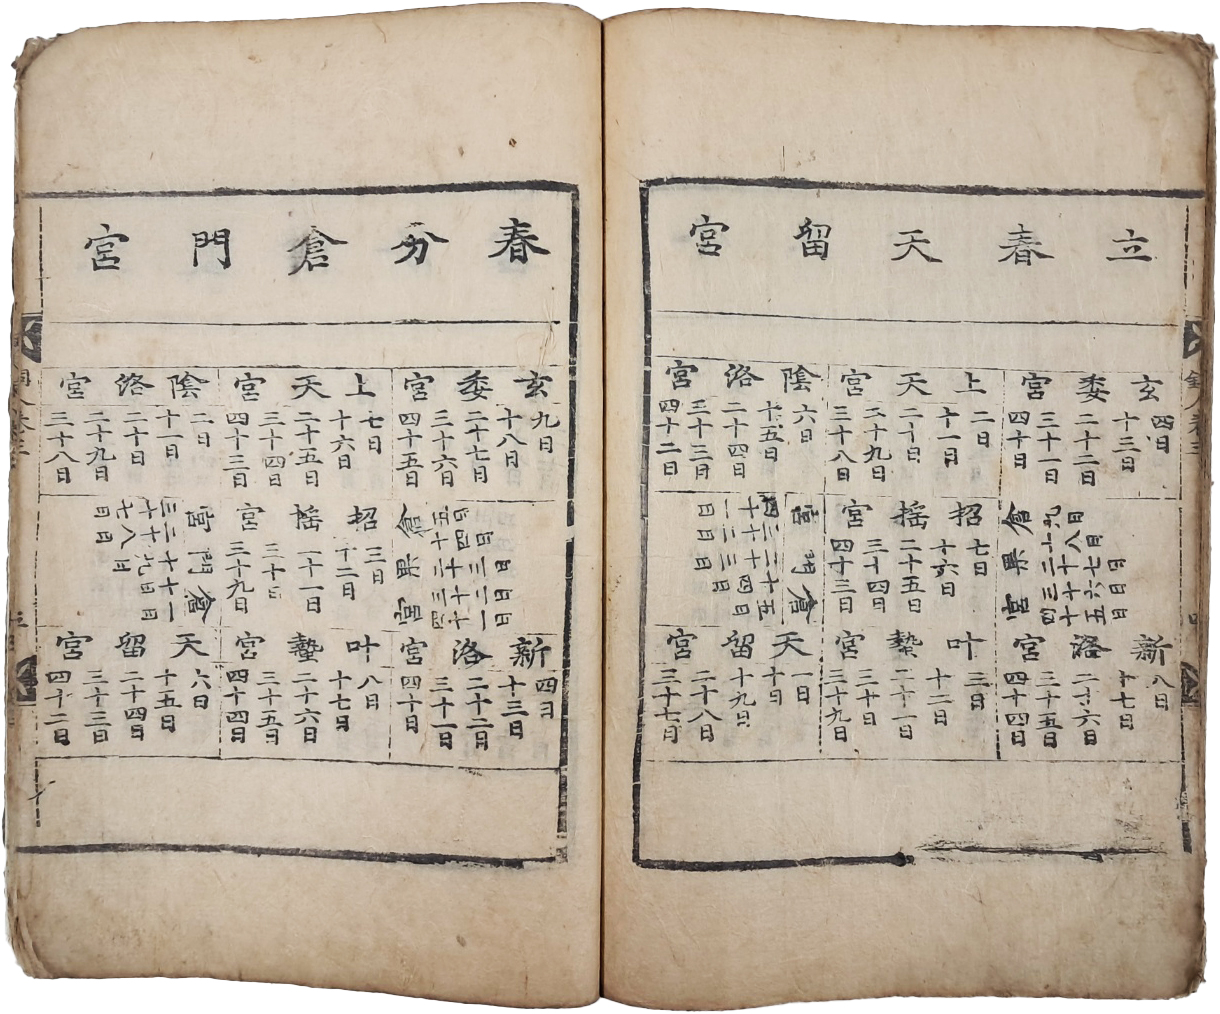 立春天留宮
玄委宮
四日
十三日
二十二日
三十一日
四十日
上天宮
二日
十一日
二十日
二十九日
三十八日
陰洛宮
六日
十五日
二十四日
三十三日
四十二日
倉果宮
九日
十八日
二十七日
三十六日
四十五日
招搖宮
七日
十六日
二十五日
三十四日
四十三日
倉門宮
五日
十四日
二十三日
三十二日
四十一日
新洛宮
八日
十七日
二十六日
三十五日
四十四日
叶蟄宮
三日
十二日
二十一日
三十日
三十九日
天留宮
一日
十日
十九日
二十八日
三十七日
春分倉門宮
玄委宮
九日
十八日
二十七日
三十六日
四十五日
上天宮
七日
十六日
二十五日
三十四日
四十三日
陰洛宮
二日
十一日
二十日
二十九日
三十八日
倉果宮
五日
十四日
二十三日
三十二日
四十一日
招搖宮
三日
十二日
二十一日
三十日
三十九日
倉門宮
一日
十日
十九日
二十八日
三十七日
新洛宮
四日
十三日
二十二日
三十一日
四十日
叶蟄宮
八日
十七日
二十六日
三十五日
四十四日
天留宮
六日
十五日
二十四日
三十三日
四十二日